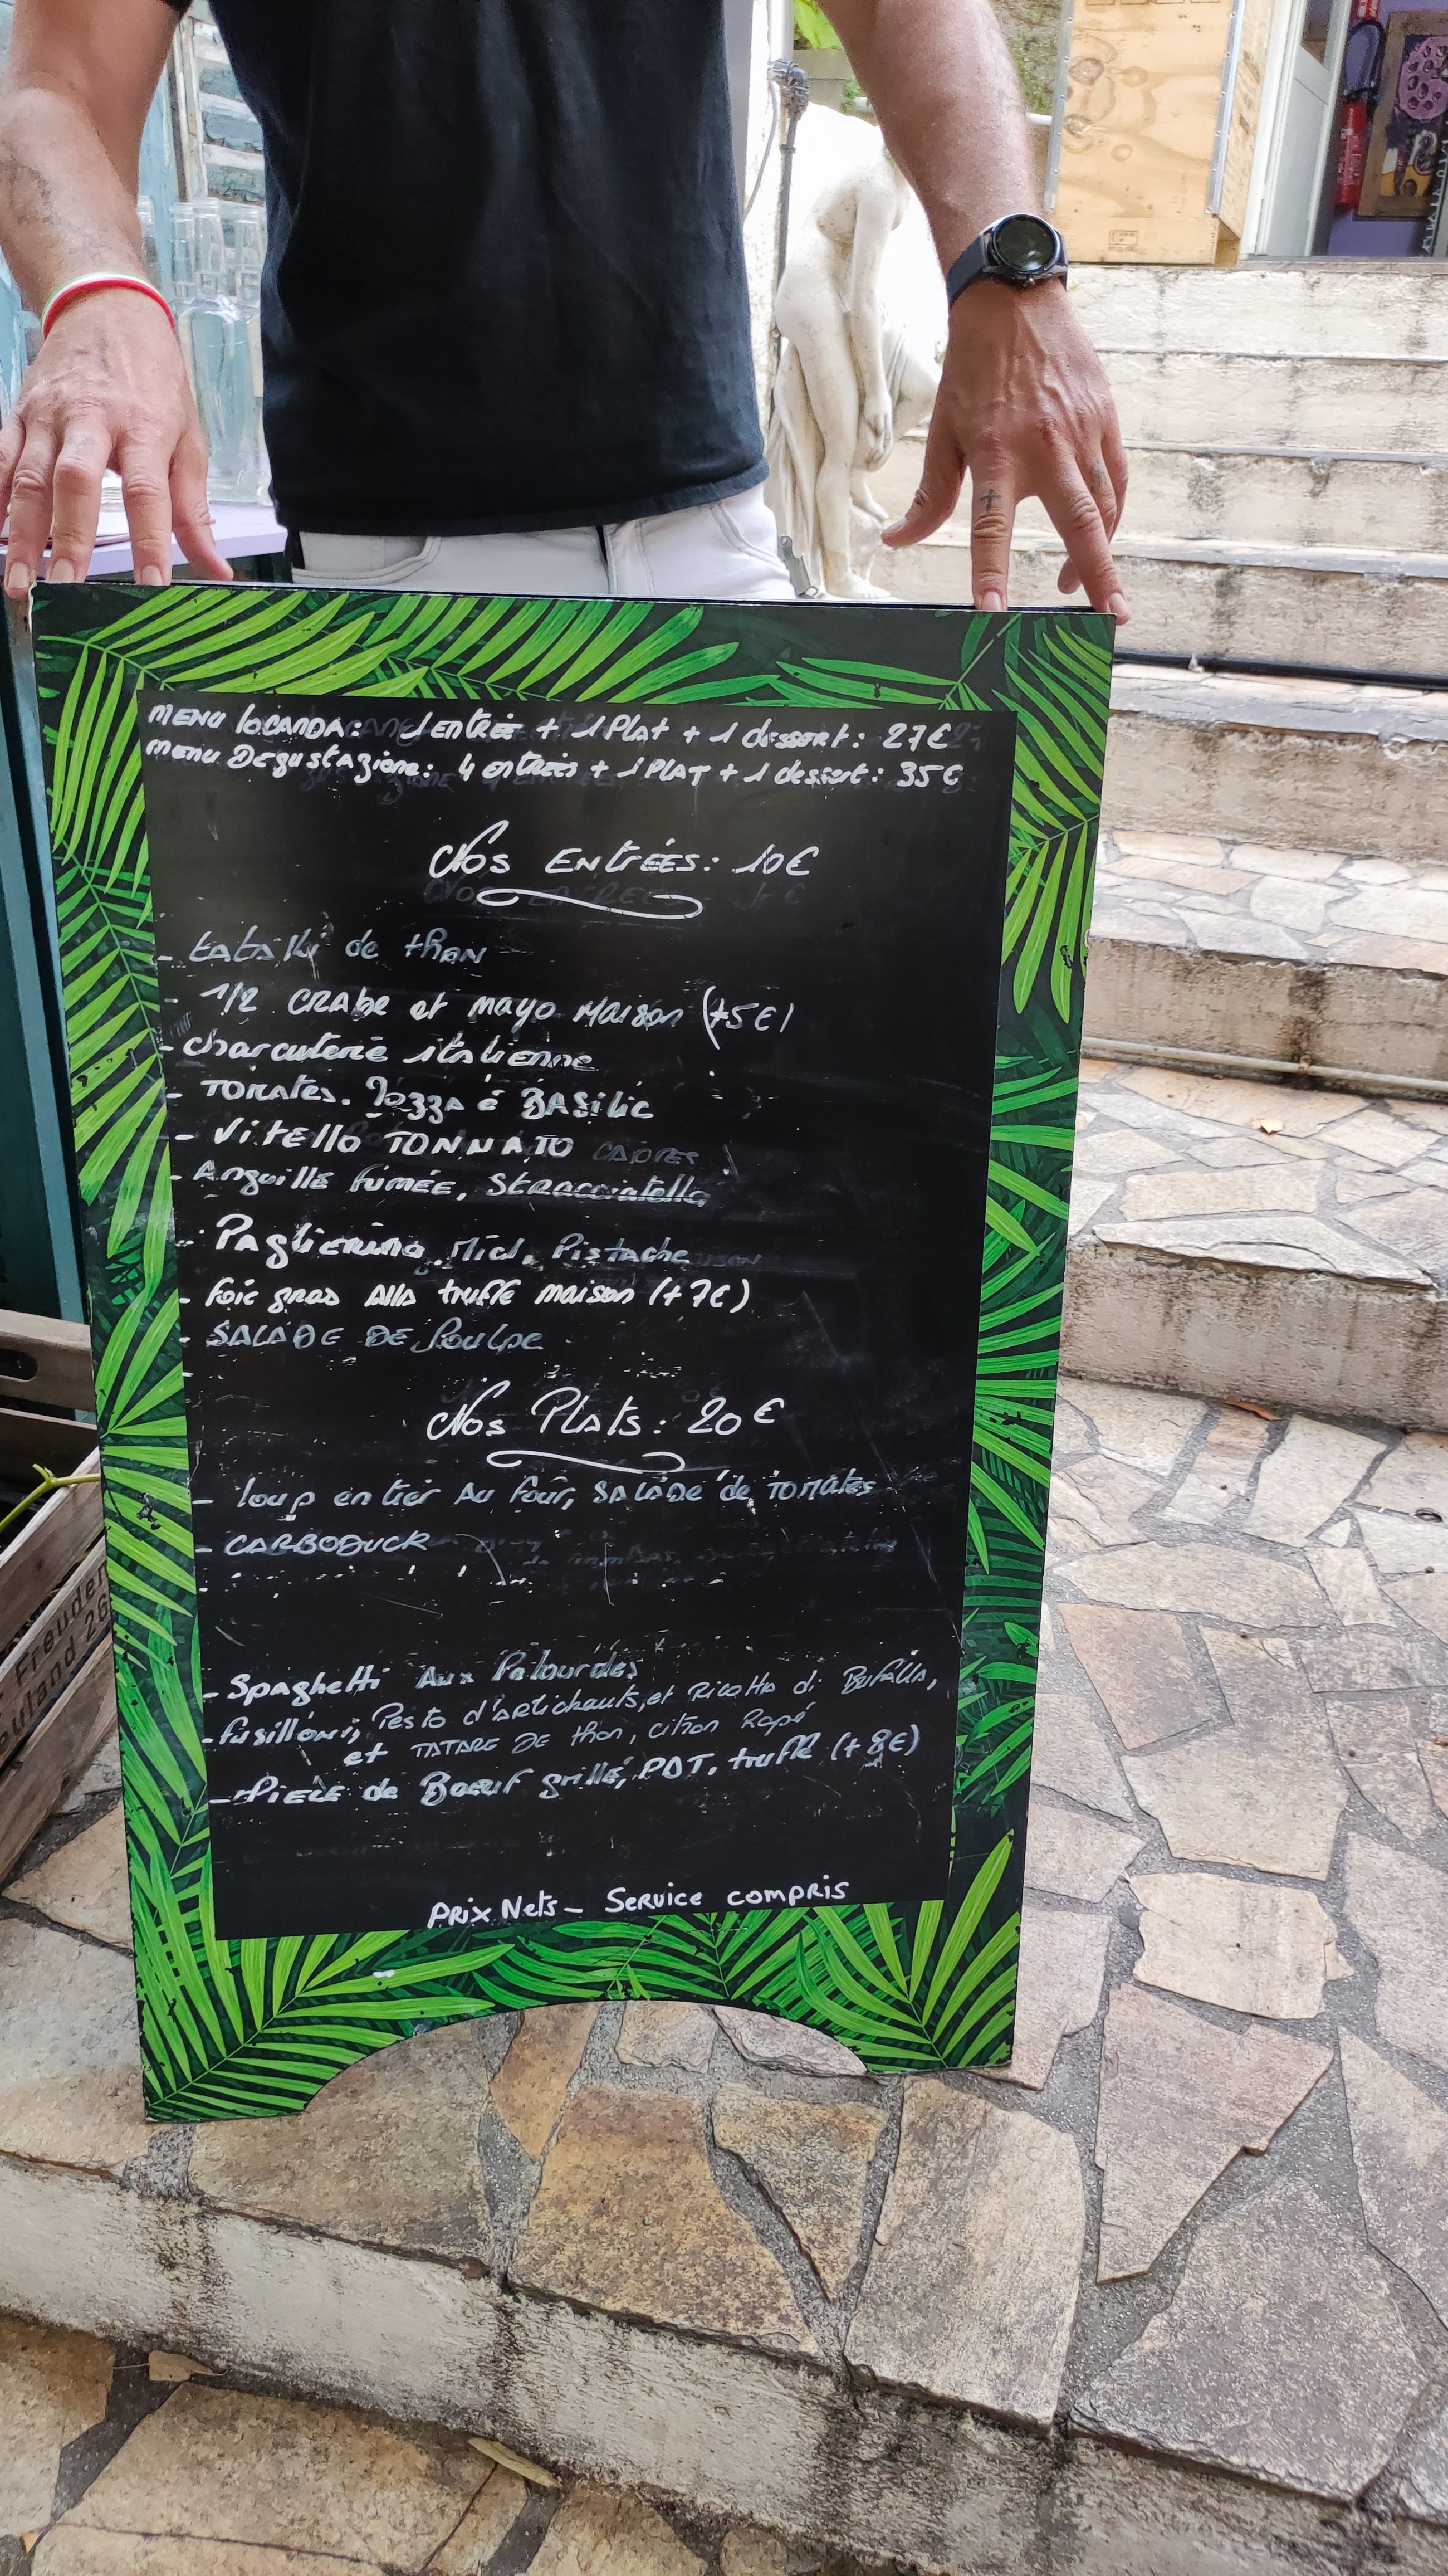 MENU LOCANDA: 1 ENTRÉE + 1 PLAT + 1 dessert: 27€
menu Degustazione: 4 entrées + 1 PLAT + 1 dessert: 35€
Nos ENTRÉES: 10€
- tataki de thon
- 1/2 CRABe et mayo Maison (+5€)
- charcuterie italienne
- TOMATES. Bozza é BASilic
- ViTEllo TONNATO
- Anguille fumée, STRacciatella
- Paglierino, Miel, Pistache
- foie gras Alla truffe maison (+7€)
- SALADE DE Poulpe
Nos Plats: 20€
- loup entier Au four, SALADE de TOMATES
- CARBODUCK
- Spaghetti Aux Palourdes
- fusilloni, Pesto d'artichauts, et Ricotta di Bufalla,
et TATARE DE thon, citron Rapé
- Pièce de Boeuf grillé, PDT, truffe (+8€)
PRIX Nets - Service compris
Freuden
26